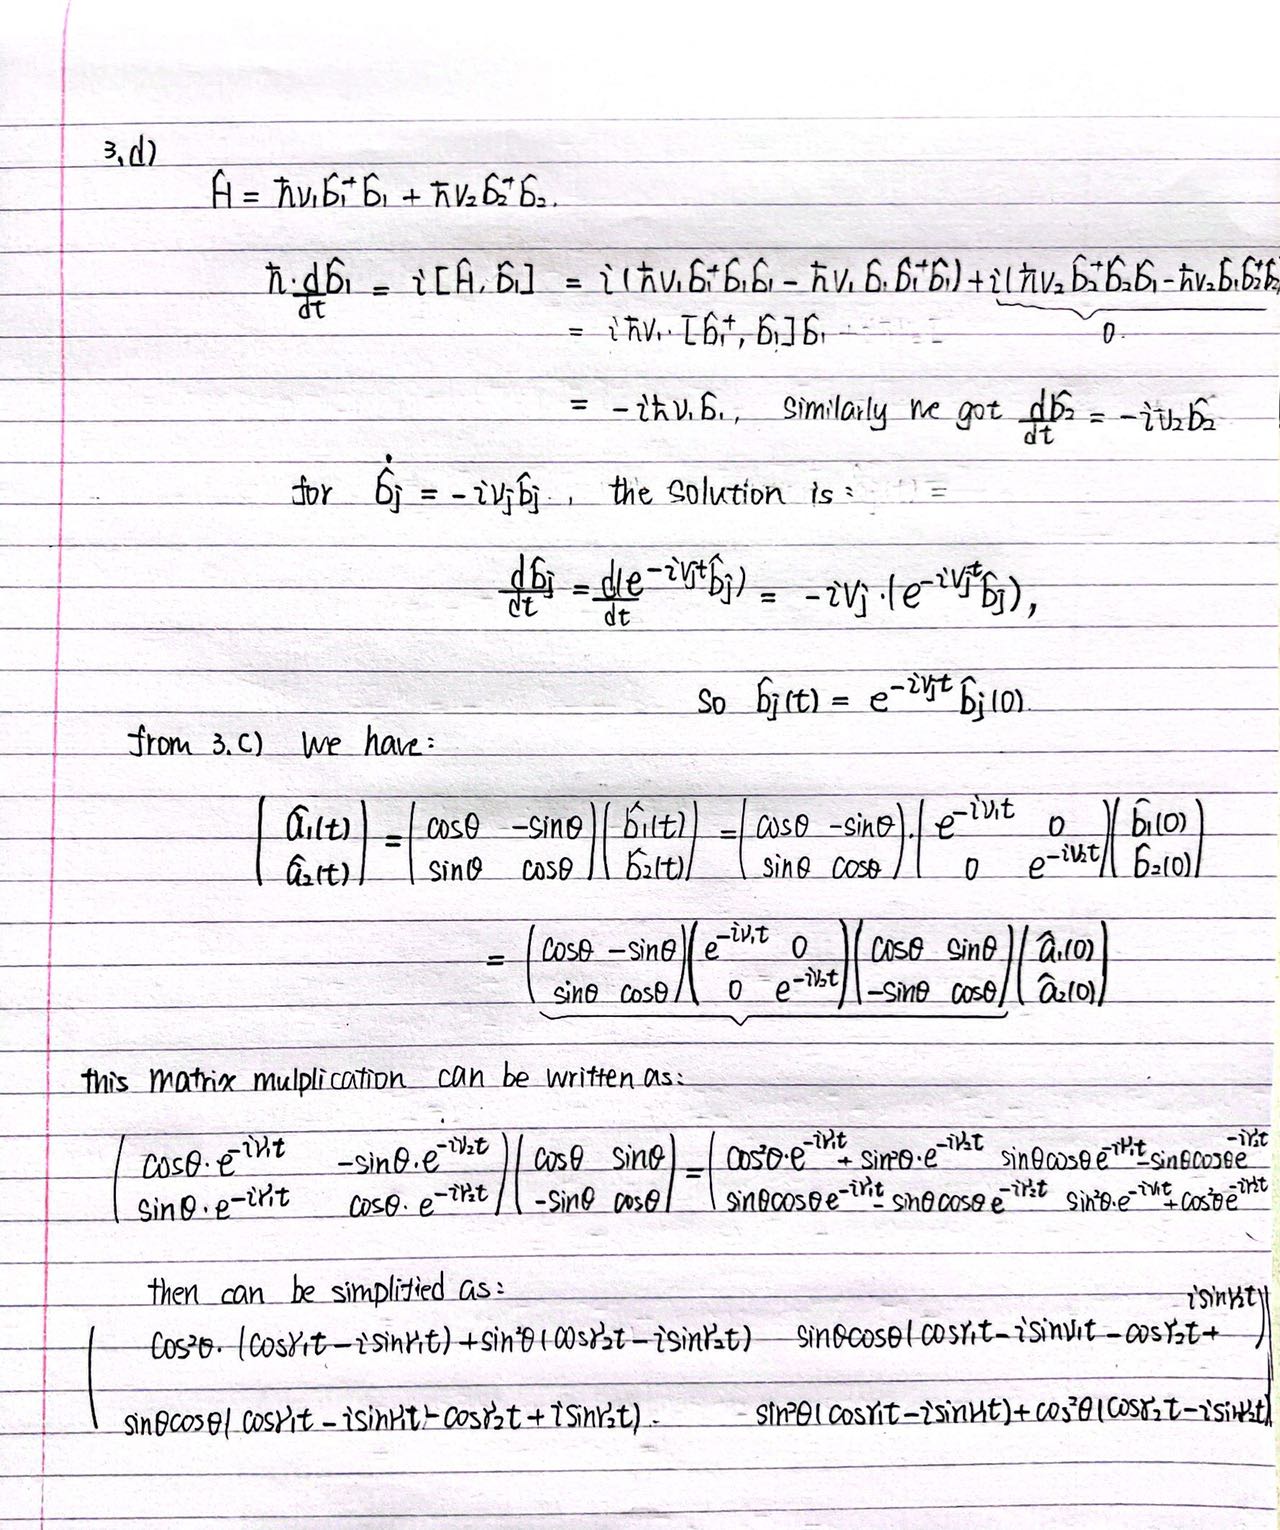 3.d)
Ĥ = ħν₁b̂₁⁺b̂₁ + ħν₂b̂₂⁺b̂₂.
ħ·db̂₁/dt = i[Ĥ, b̂₁] = i(ħν₁b̂₁⁺b̂₁b̂₁ - ħν₁b̂₁b̂₁⁺b̂₁) + i(ħν₂b̂₂⁺b̂₂b̂₁ - ħν₂b̂₁b̂₂⁺b̂₂
= iħν₁·[b̂₁⁺, b̂₁]b̂₁ 0.
= -iħν₁b̂₁, similarly we got db̂₂/dt = -iν₂b̂₂
for ḃ̂ⱼ = -iνⱼb̂ⱼ, the solution is:
db̂ⱼ/dt = d(e^{-iνⱼt}b̂ⱼ)/dt = -iνⱼ·(e^{-iνⱼt}b̂ⱼ),
So b̂ⱼ(t) = e^{-iνⱼt}b̂ⱼ(0).
from 3.c) we have:
(â₁(t)) = (cosθ -sinθ)(b̂₁(t)) = (cosθ -sinθ)·(e^{-iν₁t} 0)(b̂₁(0))
(â₂(t)) (sinθ cosθ)(b̂₂(t)) (sinθ cosθ) (0 e^{-iν₂t})(b̂₂(0))
= (cosθ -sinθ)(e^{-iν₁t} 0)(cosθ sinθ)(â₁(0))
(sinθ cosθ)(0 e^{-iν₂t})(-sinθ cosθ)(â₂(0))
this matrix mulplication can be written as:
(cosθ·e^{-iν₁t} -sinθ·e^{-iν₂t})(cosθ sinθ) = (cos²θ·e^{-iν₁t} + sin²θ·e^{-iν₂t} sinθcosθe^{-iν₁t} - sinθcosθe^{-iν₂t}
(sinθ·e^{-iν₁t} cosθ·e^{-iν₂t})(-sinθ cosθ) (sinθcosθe^{-iν₁t} - sinθcosθe^{-iν₂t} sin²θ·e^{-iν₁t} + cos²θe^{-iν₂t}
then can be simplified as:
(cos²θ·(cosν₁t - isinν₁t) + sin²θ(cosν₂t - isinν₂t) sinθcosθ(cosν₁t - isinν₁t - cosν₂t + isinν₂t))
sinθcosθ(cosν₁t - isinν₁t - cosν₂t + isinν₂t). sin²θ(cosν₁t - isinν₁t) + cos²θ(cosν₂t - isinν₂t)